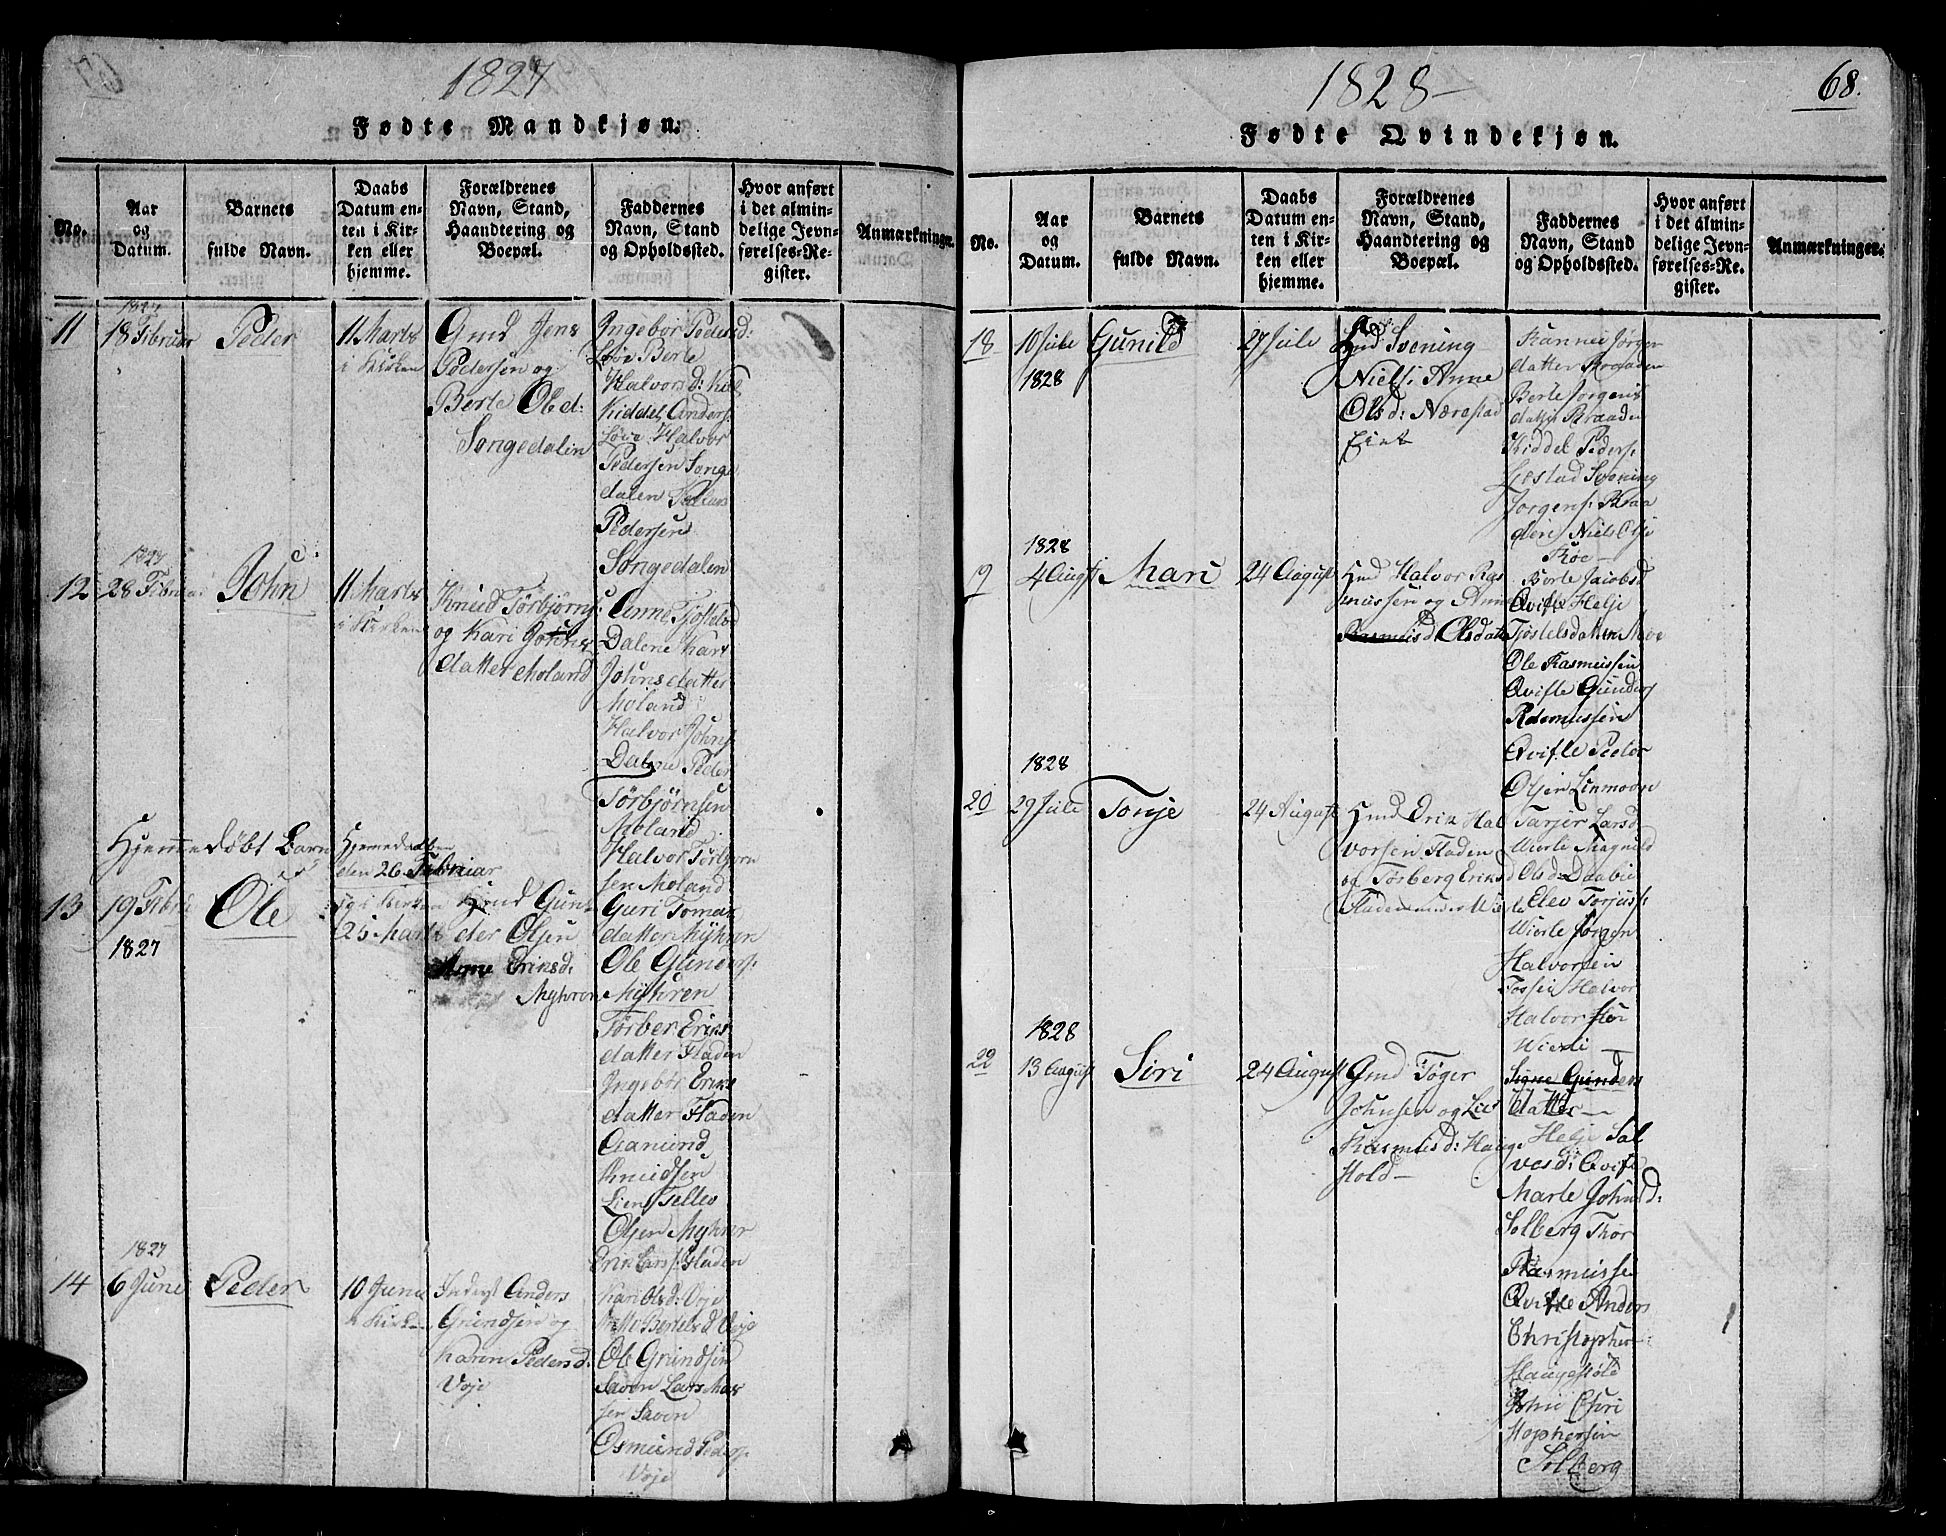 1827
Fødte Mandkjøn.
No.
Aar
og
Datum.
Barnets
fulde Navn.
Daabs
Datum en-
ten i Kir-
ken eller
hjemme.
Forældrenes
Navn, Stand,
Haandtering og
Boepæl.
Faddernes
Navn, Stand
og Opholdssted.
Hvor anført
i det almin-
delige Jevn-
førelses-Re-
gister.
Anmærkninger.
11
1827
18 Februar
Peder
11 Marts
i Kirken
Gmd Jens
Pedersen og
Berte Olsd:
Songedalen
Ingebor Pedersd:
Løve Berte
Halvorsd:
Kiddel Anders
Løve Halvor
Pedersen Songe
dalen
Pedersen
Songedalen
12
1827
28 Februar
John
11 Marts
i Kirken
Knud Torbjørns:
og Kari Johns
datter Moland
Anne Tjostelsd
Dalene Kari
Johnsdatter
Moland
Halvor Johns
Dalene Peder
Torbjørnsen
Moland
Halvor Torbjørn
sen Moland
Hjemmedøbt Barn
13
19 Febr
1827
Ole
Hjemmedøbt
den 26 Februar
og i Kirken
25 Marts
Hmd Gun
der Olsen
Anne Eriksd:
Myhren
Guri Tomas
datter Myhren
Ole Gunders:
Myhren
Torber Eriks
datter Fladen
Ingebor Eriks
datter Fladen
Aamund
Knudsen
Lien Tellev
Olsen Myhren
Erik Lars: Fladen
14
1827
6 Juni
Peder
10 Juni
i Kirken
Inderst Anders
Gundsen og
Karen Pedersd:
Voje
Kari Olsd: Voje
Bertelsd Voje
Ole Grundsen
Saven Lars
sen Saven
Osmund Peders
Voje
1828
68.
Fødte Qvindekjøn.
No.
Aar
og
Datum.
Barnets
fulde Navn.
Daabs
Datum en-
ten i Kir-
ken eller
hjemme.
Forældrenes
Navn, Stand,
Haandtering og
Boepæl.
Faddernes
Navn, Stand
og Opholdssted.
Hvor anført
i det almin-
delige Jevn-
førelses-Re-
gister.
Anmærkninger.
18
10 Juli
1828
Gunild
27 Juli
Svening
Niels: Anne
Olsd: Nærestad
Eiet
Rannei Jørgen
datter Braaden
Berte Jørgens
datter Braaden
Kiddel Peders:
Løstad Svening
Jørgens: Braa
den Niels Ols:
Roe
19
1828
4 August
Mari
24 August
Hmd Halvor Ras
mussen og Anne
Rasmusd Olsdatter
Berte Jacobsd
Qvifte Helje
Tjøstelsdatter Moe
Ole Rasmussen
Qvifte Gunders
Rasmussen
Qvifte Peder
Olsen Linmoen
20
1828
29 Juli
Tonje
24 August
Hmd Erik Hal
vorsen Fladen
og Torberg Eriksd
Fladen under Wierle
Tarjer Larsd
Wierle Magnild
Olsd: Daabu
Elev Torjus:
Wierle Jørgen
Halvorsen
Tossen Halvor
Halvorsen
Wierli
22
1828
13 August
Siri
24 August
Gmd Toger
Johnsen og Liv
Rasmusd: Hauge
Hold
Signe Gunders
datter
Helje Sal
vesd: Qvifte
Marte Johnsd:
Solberg Thor
Rasmusse
Qvifte Anders
Christopher
Haugeholt
John Chri
stophersen
Solberg